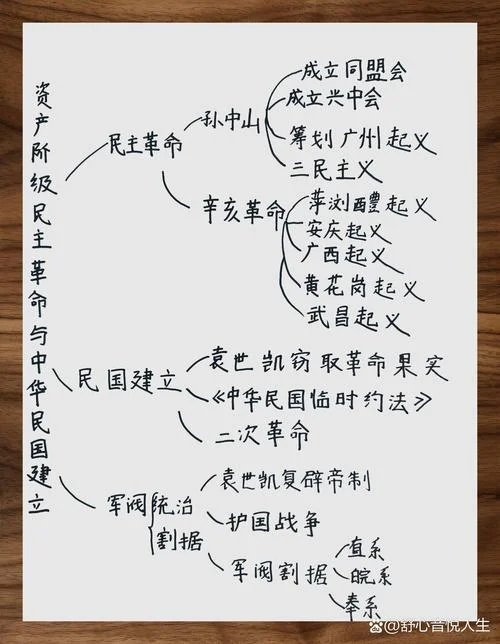 资产阶级民主革命与中华民国建立
民主革命
孙中山
成立同盟会
成立兴中会
筹划广州起义
三民主义
辛亥革命
萍浏醴起义
安庆起义
广西起义
黄花岗起义
武昌起义
民国建立
袁世凯窃取革命果实
《中华民国临时约法》
二次革命
军阀统治
割据
袁世凯复辟帝制
护国战争
军阀割据
直系
皖系
奉系
@舒心音悦人生